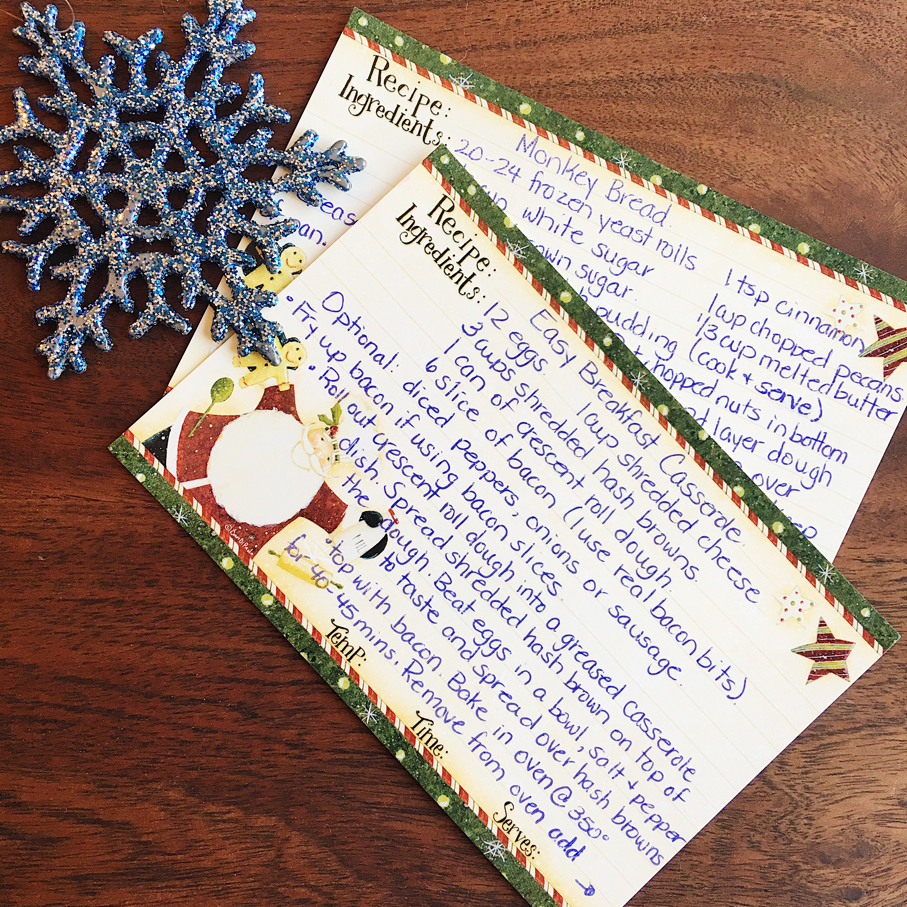 Recipe: Monkey Bread
Ingredients: 20-24 frozen yeast rolls
white sugar
sugar.
pudding (cook + serve)
1 tsp cinnamon
1 cup chopped pecans
1/3 cup melted butter
chopped nuts in bottom
layer dough
over
Recipe: Easy Breakfast Casserole.
Ingredients: 12 eggs 1 cup shredded cheese
3 cups shredded hash browns.
1 can of crescent roll dough
6 slice of bacon (use real bacon bits)
Optional: diced peppers, onions or sausage.
• Fry up bacon if using bacon slices
• Roll out crescent roll dough into a greased casserole
dish. Spread shredded hash brown on top of
the dough. Beat eggs in a bowl, salt + pepper
to taste and spread over hash browns
top with bacon. Bake in oven @ 350°
for 40-45 mins. Remove from oven add
→
Temp:
Time:
Serves: